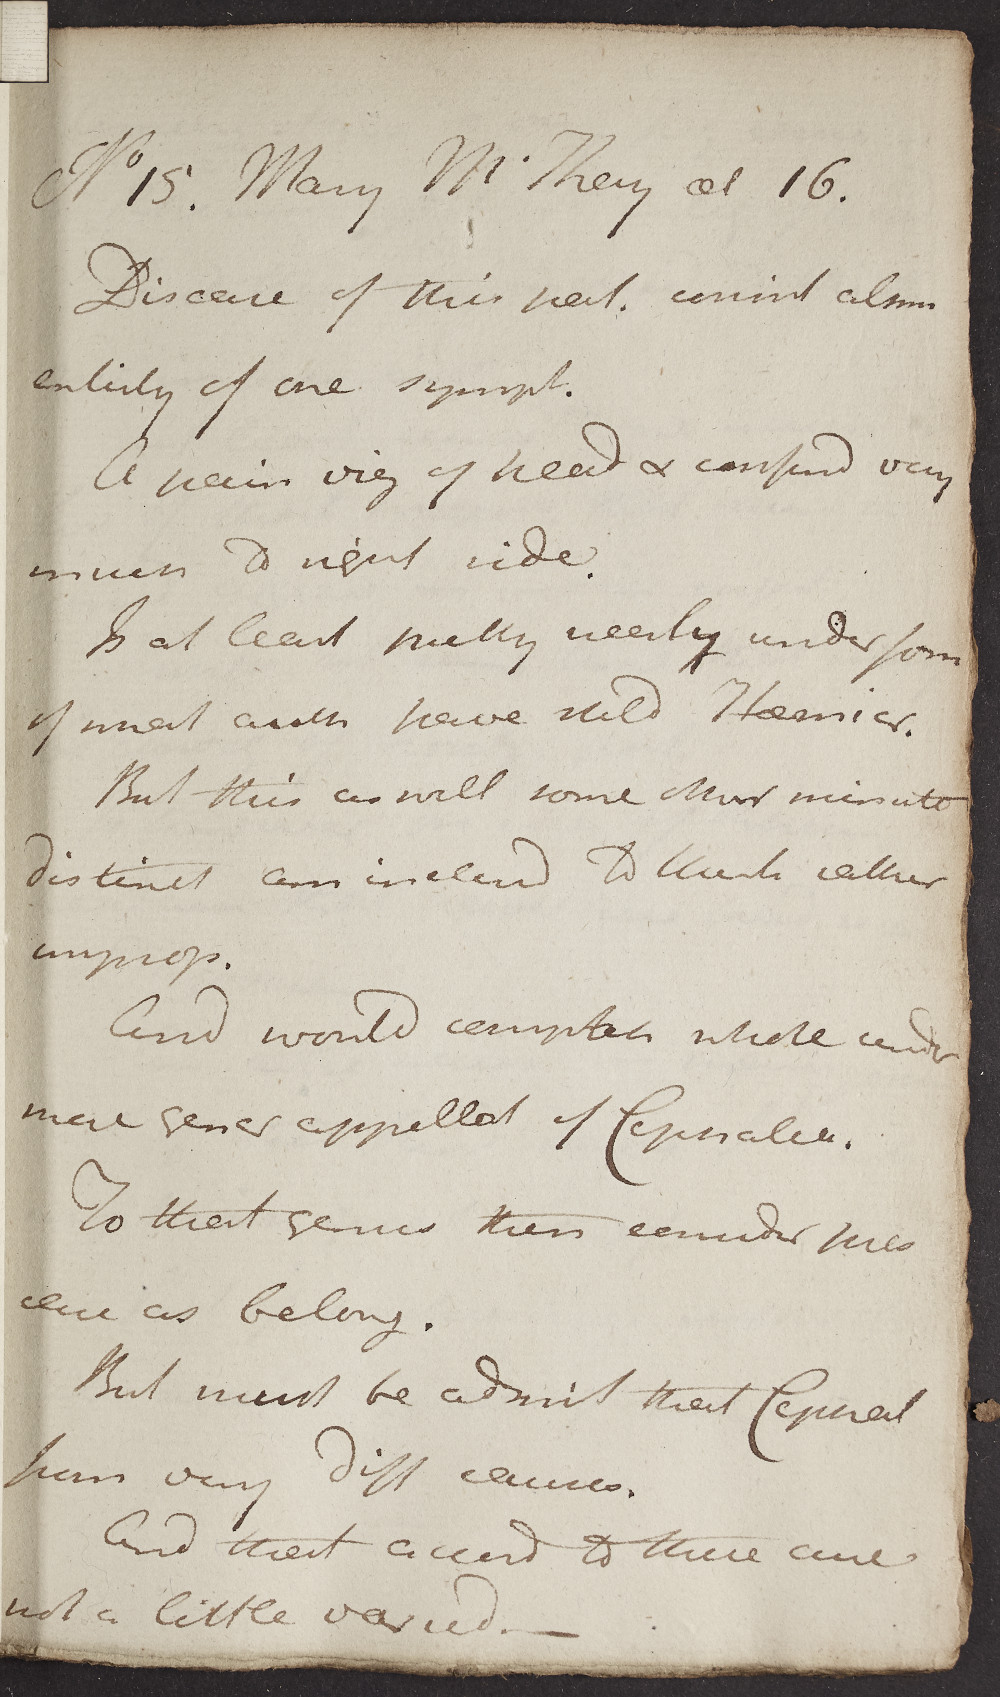 No 15. Mary McThery aet 16.
Disease of this pat. consist almos
entirely of one sympt.
A pain viz of head & confind very
much to right side.
Is at least pretty nearly under form
of what auth have stild Hemicr.
But this as well some other minute
distinct am inclind to think rather
improp.
And would compreh whole under
mere gener appellat of Cephalea.
To that genus then consider pres
case as belong.
But must be admit that Cephal
from very diff causes.
And that accord to these cure
not a little varied.—